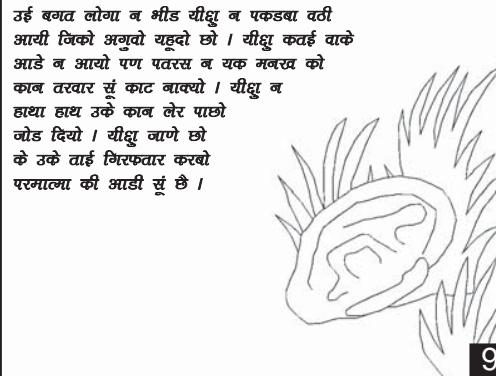 उई बगत लोगा न भीड यीक्षु न पकडबा वठी
आयी जिको अगुवो यहूदो छो । यीक्षु कतई वाके
आडे न आयो पण पतरस न यक मनख को
कान तरवार सूं काट नाक्यो । यीक्षु न
हाथा हाथ उके कान लेर पाछो
जोड दियो । यीक्षु जाणे छो
के उके ताई गिरफतार करबो
परमात्मा की आडी सूं छै ।
9